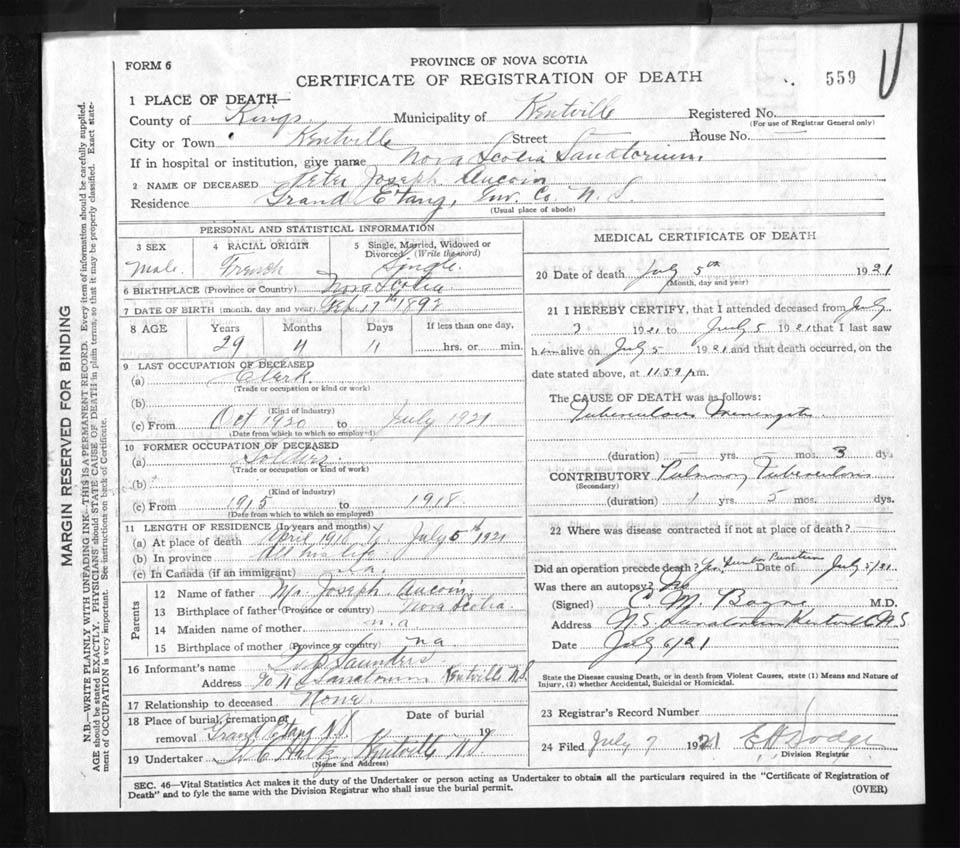 FORM 6
PROVINCE OF NOVA SCOTIA
CERTIFICATE OF REGISTRATION OF DEATH
559
1 PLACE OF DEATH—
County of Kings Municipality of Kentville Registered No.
(For use of Registrar General only)
City or Town Kentville Street House No.
If in hospital or institution, give name Nova Scotia Sanatorium
2 NAME OF DECEASED Peter Joseph Aucoin
Residence Grand Etang, Inv. Co. N. S.
(Usual place of abode)
PERSONAL AND STATISTICAL INFORMATION
3 SEX 4 RACIAL ORIGIN 5 Single, Married, Widowed or Divorced (Write the word)
Male. French Single.
6 BIRTHPLACE (Province or Country) Nova Scotia
7 DATE OF BIRTH (month, day and year) 17th 1892
8 AGE Years Months Days If less than one day,
29 4 hrs. or min.
9 LAST OCCUPATION OF DECEASED
(a) Clerk
(Trade or occupation or kind of work)
(b)
(Kind of industry)
(c) From Oct 1920 to July 1921
(Date from which to which so employed)
10 FORMER OCCUPATION OF DECEASED
(a) Soldier
(Trade or occupation or kind of work)
(b)
(Kind of industry)
(c) From 1915 to 1918
(Date from which to which so employed)
11 LENGTH OF RESIDENCE (In years and months)
(a) At place of death April to July 5th 1921
(b) In province All his life
(c) In Canada (if an immigrant) n.a.
Parents
12 Name of father Mr Joseph Aucoin
13 Birthplace of father (Province or country) Nova Scotia
14 Maiden name of mother n.a
15 Birthplace of mother (Province or country) na
16 Informant's name Saunders
Address c/o N S Sanatorium Kentville N.S.
17 Relationship to deceased None
18 Place of burial, cremation or removal Grand Etang N.S. Date of burial 19
19 Undertaker Kentville N S
(Name and Address)
MEDICAL CERTIFICATE OF DEATH
20 Date of death July 5th 1921
(Month, day and year)
21 I HEREBY CERTIFY, that I attended deceased from July
3 1921 to July 5 1921 that I last saw
him alive on July 5 1921 and that death occurred, on the
date stated above, at 11.59 pm.
The CAUSE OF DEATH was as follows:
Tuberculous Meningitis
(duration) yrs. mos. 3 dys.
CONTRIBUTORY Pulmonary Tuberculosis
(Secondary)
(duration) 1 yrs. 5 mos. dys.
22 Where was disease contracted if not at place of death?
Did an operation precede death? Yes, Lumbar Puncture Date of July 5/21
Was there an autopsy? No
(Signed) M. M.D.
Address N.S. Sanatorium Kentville N.S
Date July 6/21
State the Disease causing Death, or in death from Violent Causes, state (1) Means and Nature of
Injury, (2) whether Accidental, Suicidal or Homicidal.
23 Registrar's Record Number
24 Filed July 7 1921 Dodge
Division Registrar
SEC. 46—Vital Statistics Act makes it the duty of the Undertaker or person acting as Undertaker to obtain all the particulars required in the "Certificate of Registration of
Death" and to fyle the same with the Division Registrar who shall issue the burial permit. (OVER)
MARGIN RESERVED FOR BINDING
N.B.—WRITE PLAINLY WITH UNFADING INK—THIS IS A PERMANENT RECORD. Every item of information should be carefully supplied.
AGE should be stated EXACTLY. PHYSICIANS should STATE CAUSE OF DEATH in plain terms, so that it may be properly classified. Exact state-
ment of OCCUPATION is very important. See instructions on back of Certificate.